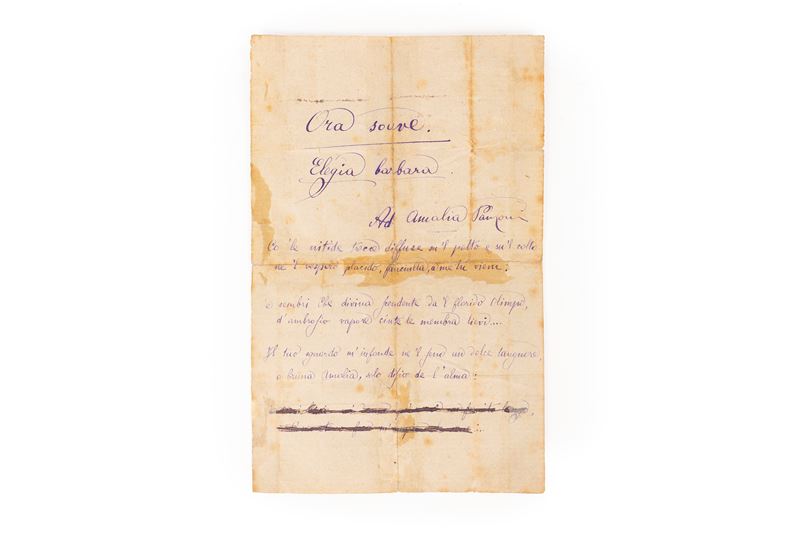 Ora soave.
Elegia barbara.
Ad Amalia
Co 'le nitide diffuse su 'l petto e su 'l collo
ne 'l vespero placido, fanciulla, a me tu vieni:
e sembri Ebe divina scendente da l' florido Olimpo,
d'ambrosio vapore cinte le membra lievi....
Il tuo sguardo m'infonde ne 'l seno un dolce languore,
o bruna Amalia, solo de l'alma: